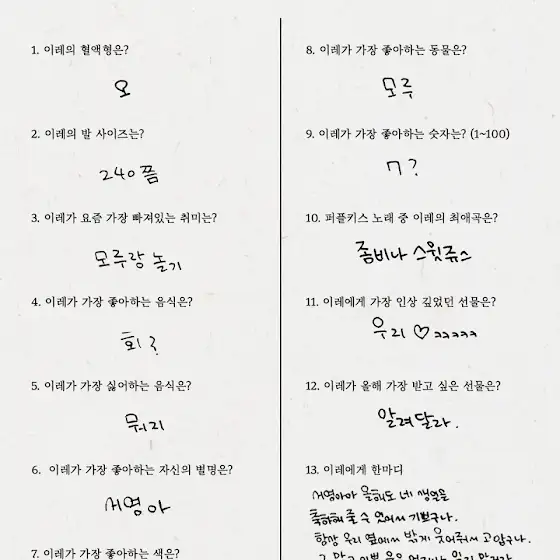 1. 이레의 혈액형은?
오
2. 이레의 발 사이즈는?
240 쯤
3. 이레가 요즘 가장 빠져있는 취미는?
모루랑 놀기
4. 이레가 가장 좋아하는 음식은?
회?
5. 이레가 가장 싫어하는 음식은?
뭐지
6. 이레가 가장 좋아하는 자신의 별명은?
서영아
7. 이레가 가장 좋아하는 색은?
8. 이레가 가장 좋아하는 동물은?
모루
9. 이레가 가장 좋아하는 숫자는? (1~100)
7?
10. 퍼플키스 노래 중 이레의 최애곡은?
좀비나 스윗쥬스
11. 이레에게 가장 인상 깊었던 선물은?
우리 ♡ ㅋㅋㅋㅋㅋ
12. 이레가 올해 가장 받고 싶은 선물은?
알려달라.
13. 이레에게 한마디
서영아아 올해도 네 생일을
축하해 줄 수 있어서 기쁘구나.
항상 우리 옆에서 밝게 웃어줘서 고맙구나.